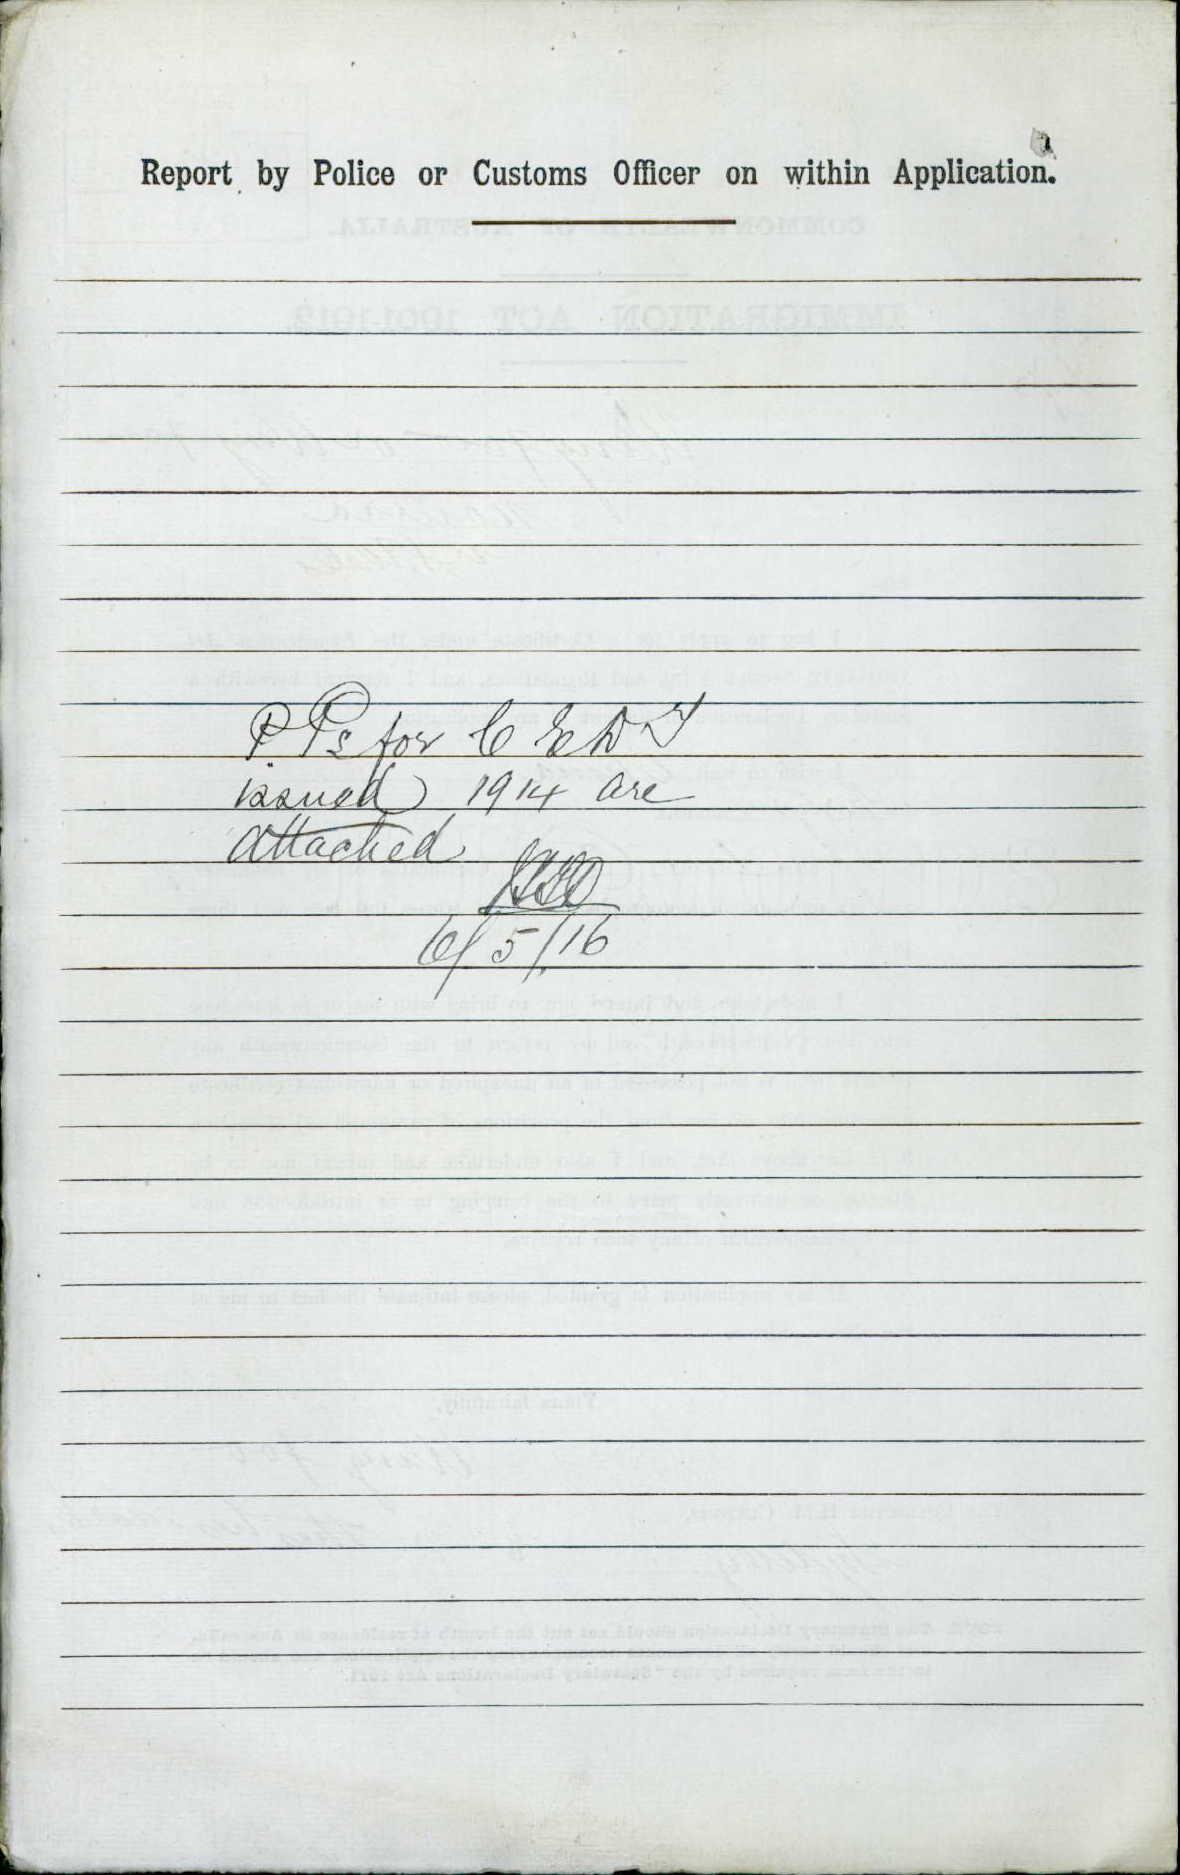 Report by Police or Customs Officer on within Application.
P Ps for C E D T
issued 1914 are
attached
6/5/16